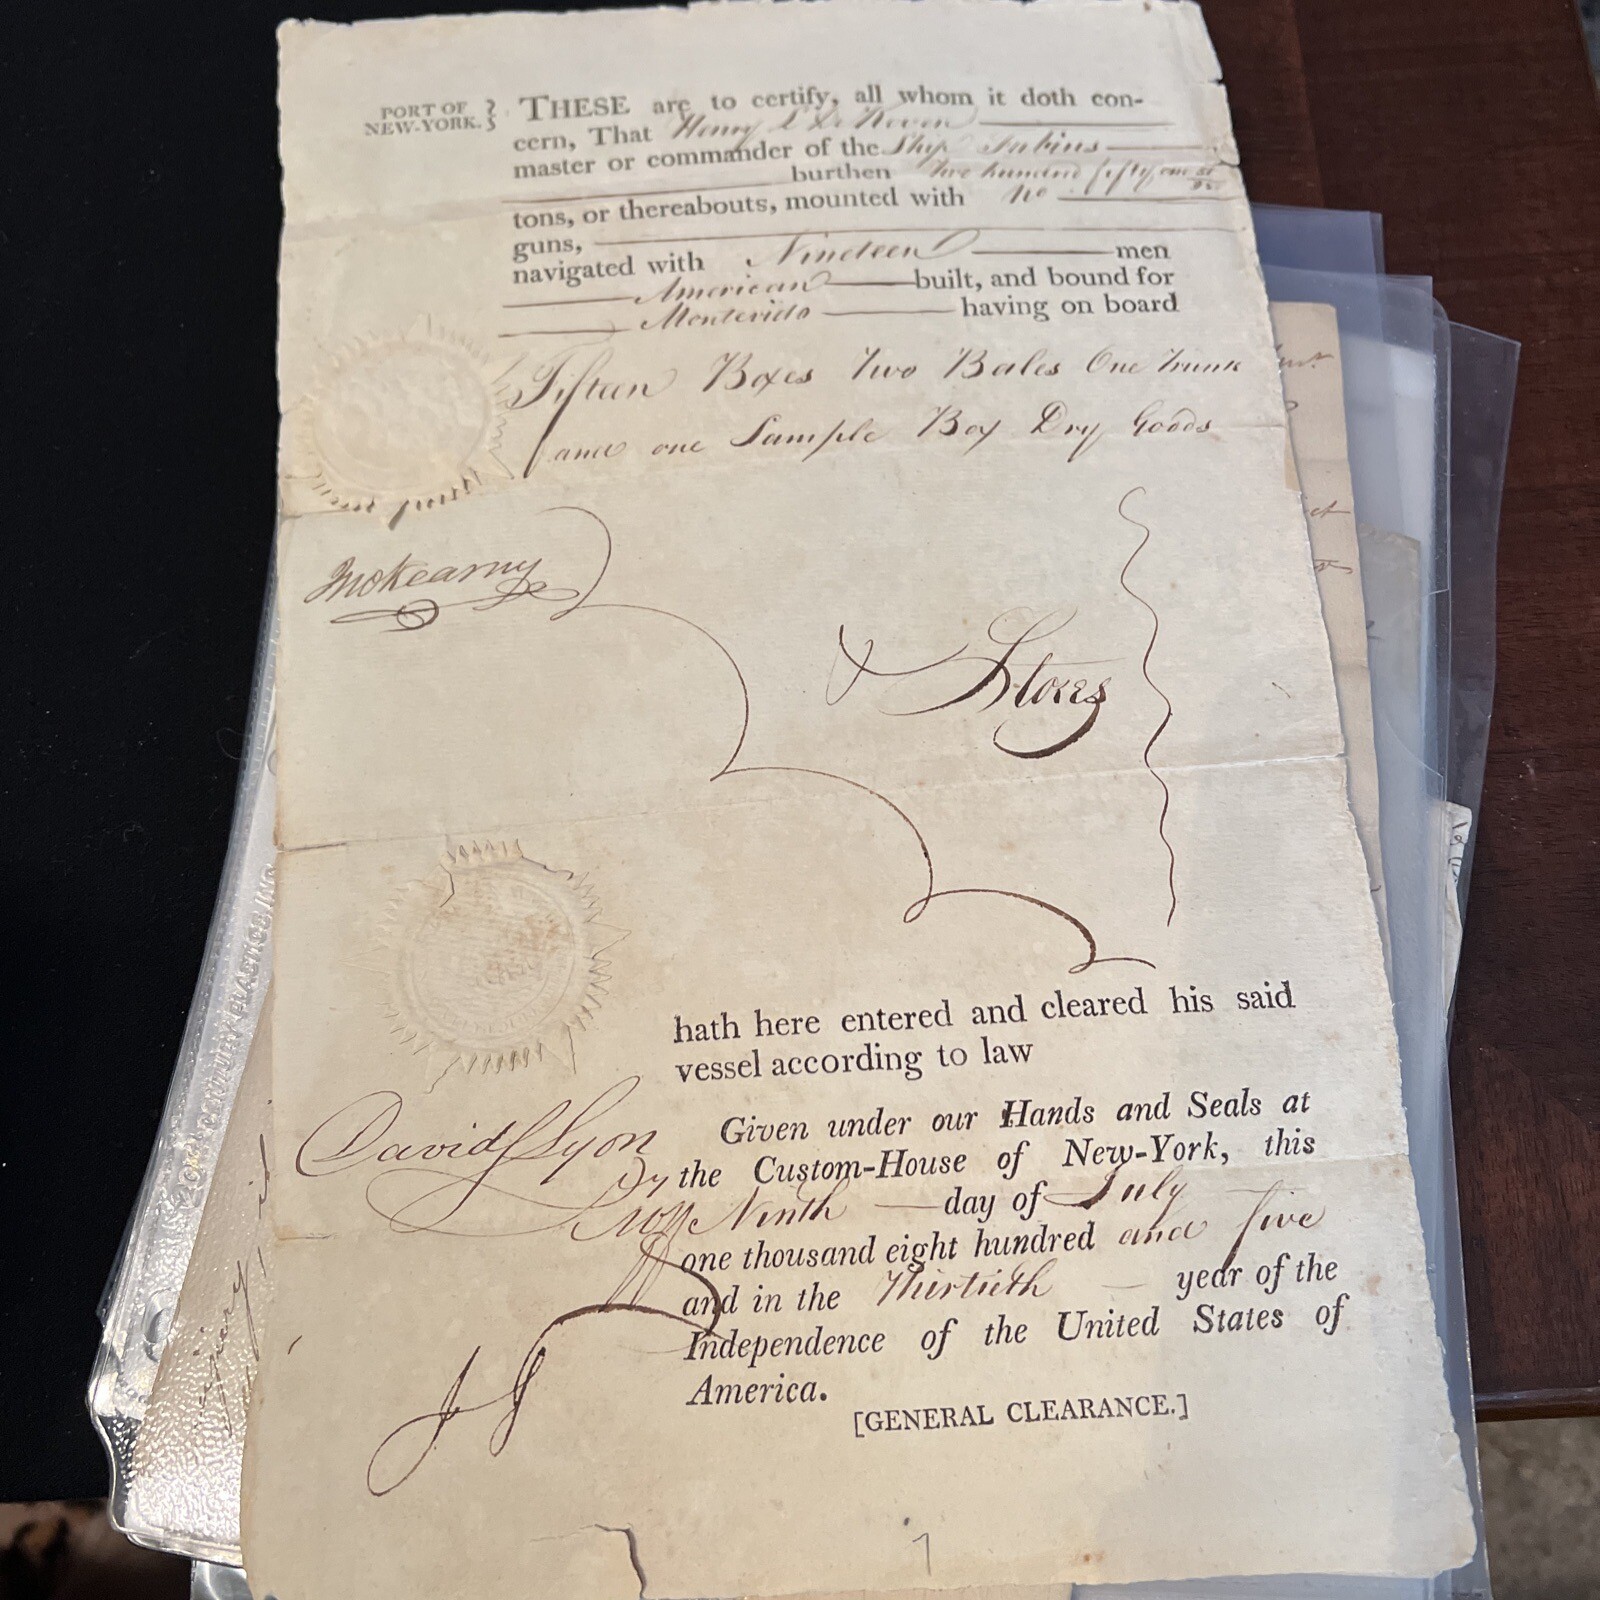 PORT OF
NEW-YORK.
THESE are to certify, all whom it doth con-
cern, That Henry
master or commander of the Ship Sabina
burthen Two hundred fifty one
tons, or thereabouts, mounted with no
guns,
navigated with Nineteen men
American built, and bound for
Montevido having on board
Fifteen Boxes Two Bales One Trunk
and one Sample Box Dry Goods
& Stores
hath here entered and cleared his said
vessel according to law
David Lyon
Given under our Hands and Seals at
the Custom-House of New-York, this
Ninth day of July
one thousand eight hundred and five
and in the Thirtieth year of the
Independence of the United States of
America.
[GENERAL CLEARANCE.]
CENTURY PLASTICS, INC